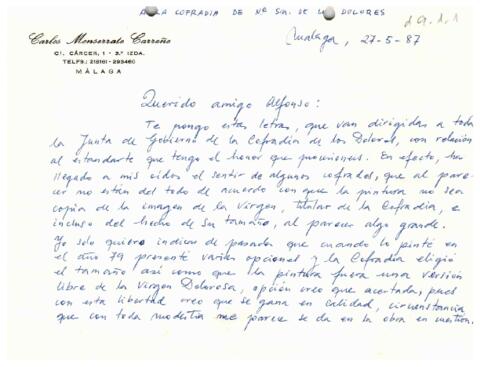 A LA COFRADIA DE Nª SRA. DE LOS DOLORES
Carlos Monserrate Carreño
C/. CÁRCER, 1 - 3.º IZDA.
TELFS.: 218161 - 293460
MÁLAGA
Málaga, 27-5-87
Querido amigo Alfonso:
Te pongo estas letras, que van dirigidas a toda
la Junta de Gobierno de la Cofradía de los Dolores, con relación
al estandarte que tengo el honor que procesioneis. En efecto, ha
llegado a mis oidos el sentir de algunos cofrades, que al pare
cer no están del todo de acuerdo con que la pintura no sea
copia de la imagen de la Virgen, titular de la Cofradía, e
incluso del hecho de su tamaño, al parecer algo grande.
Yo sólo quiero indicar de pasada que cuando lo pinté en
el año 79 presenté varias opciones y la Cofradía eligió
el tamaño así como que la pintura fuera una versión
libre de la Virgen Dolorosa, opción creo que acertada, pues
con esta libertad creo que se gana en calidad, circunstancia,
que con toda modestia me parece se da en la obra en cuestión.